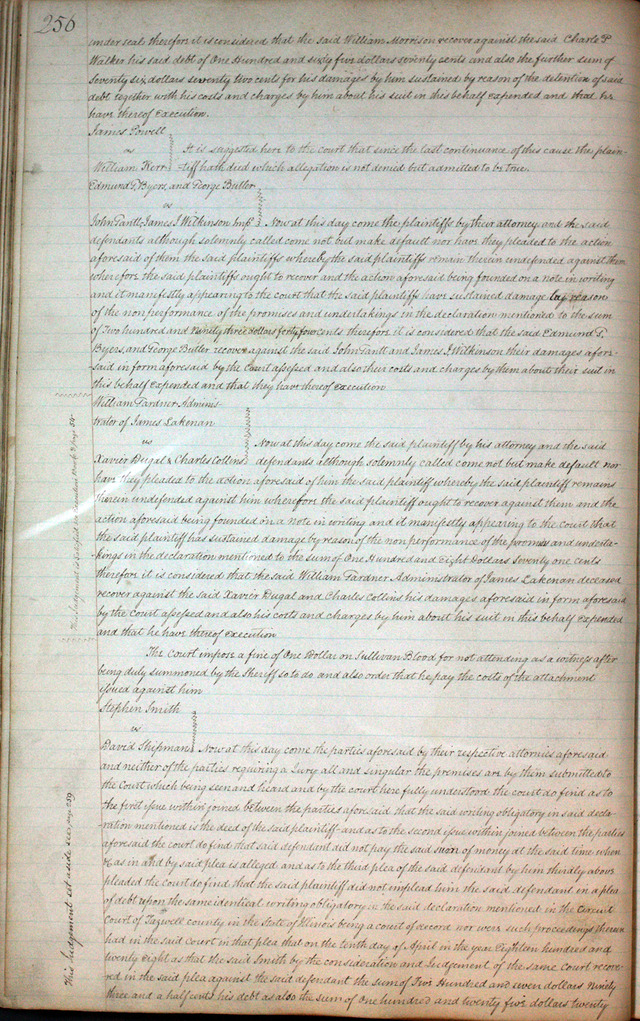 256
under seal therefore it is considered that the said William Morrison recover against the said Charles P
Walker his said debt of One Hundred and sixty five dollars seventy cents and also the further sum of
Seventy six dollars seventy two cents for his damages by him sustained by reason of the detention of said
debt together with his costs and charges by him about his suit in this behalf expended and that he
have thereof Execution.
James Powell
vs
It is suggested here to the court that since the last continuance of this cause the plain-
William Kerr
tiff hath died which allegation is not denied but admitted to be true.
Edmund T. Byers, and George Butler
vs
John Pantt James J Wilkinson Impd. Now at this day come the plaintiffs by their attorney and the said
defendants although solemnly called come not but make default nor have they pleaded to the action
aforesaid of them the said plaintiffs whereby the said plaintiff remain therein undefended against them
wherefore the said plaintiffs ought to recover and the action aforesaid being founded on a note in writing
and it manifestly appearing to the court that the said plaintiffs have sustained damage by reason
of the non performance of the promises and undertakings in the declaration mentioned to the sum
of Two hundred and Ninety three dollars forty four cents therefore it is considered that the said Edmund T.
Byers, and George Butler recover against the said John Pantt and James J Wilkinson their damages afore-
said in form aforesaid by the court assessed and also their costs and charges by them about their suit in
this behalf expended and that they have thereof Execution
William Tardner Adminis-
trator of James Lakenan
vs
Now at this day come the said plaintiff by his attorney and the said
Xavier Dugal & Charles Collins defendants although solemnly called come not but make default nor
have they pleaded to the action aforesaid of him the said plaintiff whereby the said plaintiff remains
therein undefended against him wherefore the said plaintiff ought to recover against them and the
action aforesaid being founded on a note in writing and it manifestly appearing to the court that
the said plaintiff has sustained damage by reason of the non performance of the promises and underta-
kings in the declaration mentioned to the sum of One Hundred and Eight Dollars Seventy one cents
therefore it is considered that the said William Tardner Administrator of James Lakenan deceased
recover against the said Xavier Dugal and Charles Collins his damages aforesaid in form aforesaid
by the court assessed and also his costs and charges by him about his suit in this behalf Expended
and that he have thereof execution
The Court impose a fine of One Dollar on Sullivan Blood for not attending as a witness after
being duly summoned by the Sheriff so to do and also order that he pay the costs of the attachment
issued against him
Stephen Smith
vs
David Shipman Now at this day come the parties aforesaid by their respective attornies aforesaid
and neither of the parties requiring a Jury all and singular the premises are by them submitted to
the Court which being seen and heard and by the court here fully understood the court do find as to
the first issue within joined between the parties aforesaid that the said writing obligatory in said decla-
ration mentioned is the deed of the said plaintiff and as to the second issue within joined between the parties
aforesaid the court do find that said defendant did not pay the said sum of money at the said time when
&c as in and by said plea is alleged and as to the third plea of the said defendant by him thirdly above
pleaded the court do find that the said plaintiff did not implead him the said defendant in a plea
of debt upon the same identical writing obligatory in the said declaration mentioned in the Circuit
Court of Tazwell county in the State of Illinois being a court of record nor were such proceedings thereon
had in the said Court in that plea that on the tenth day of April in the year Eighteen hundred and
twenty Eight as that the said Smith by the consideration and Judgement of the same Court recove-
red in the said plea against the said defendant the sum of Two Hundred and seven dollars Ninety
three and a half cents his debt as also the sum of One hundred and twenty five dollars twenty
This Judgement set aside see page 259